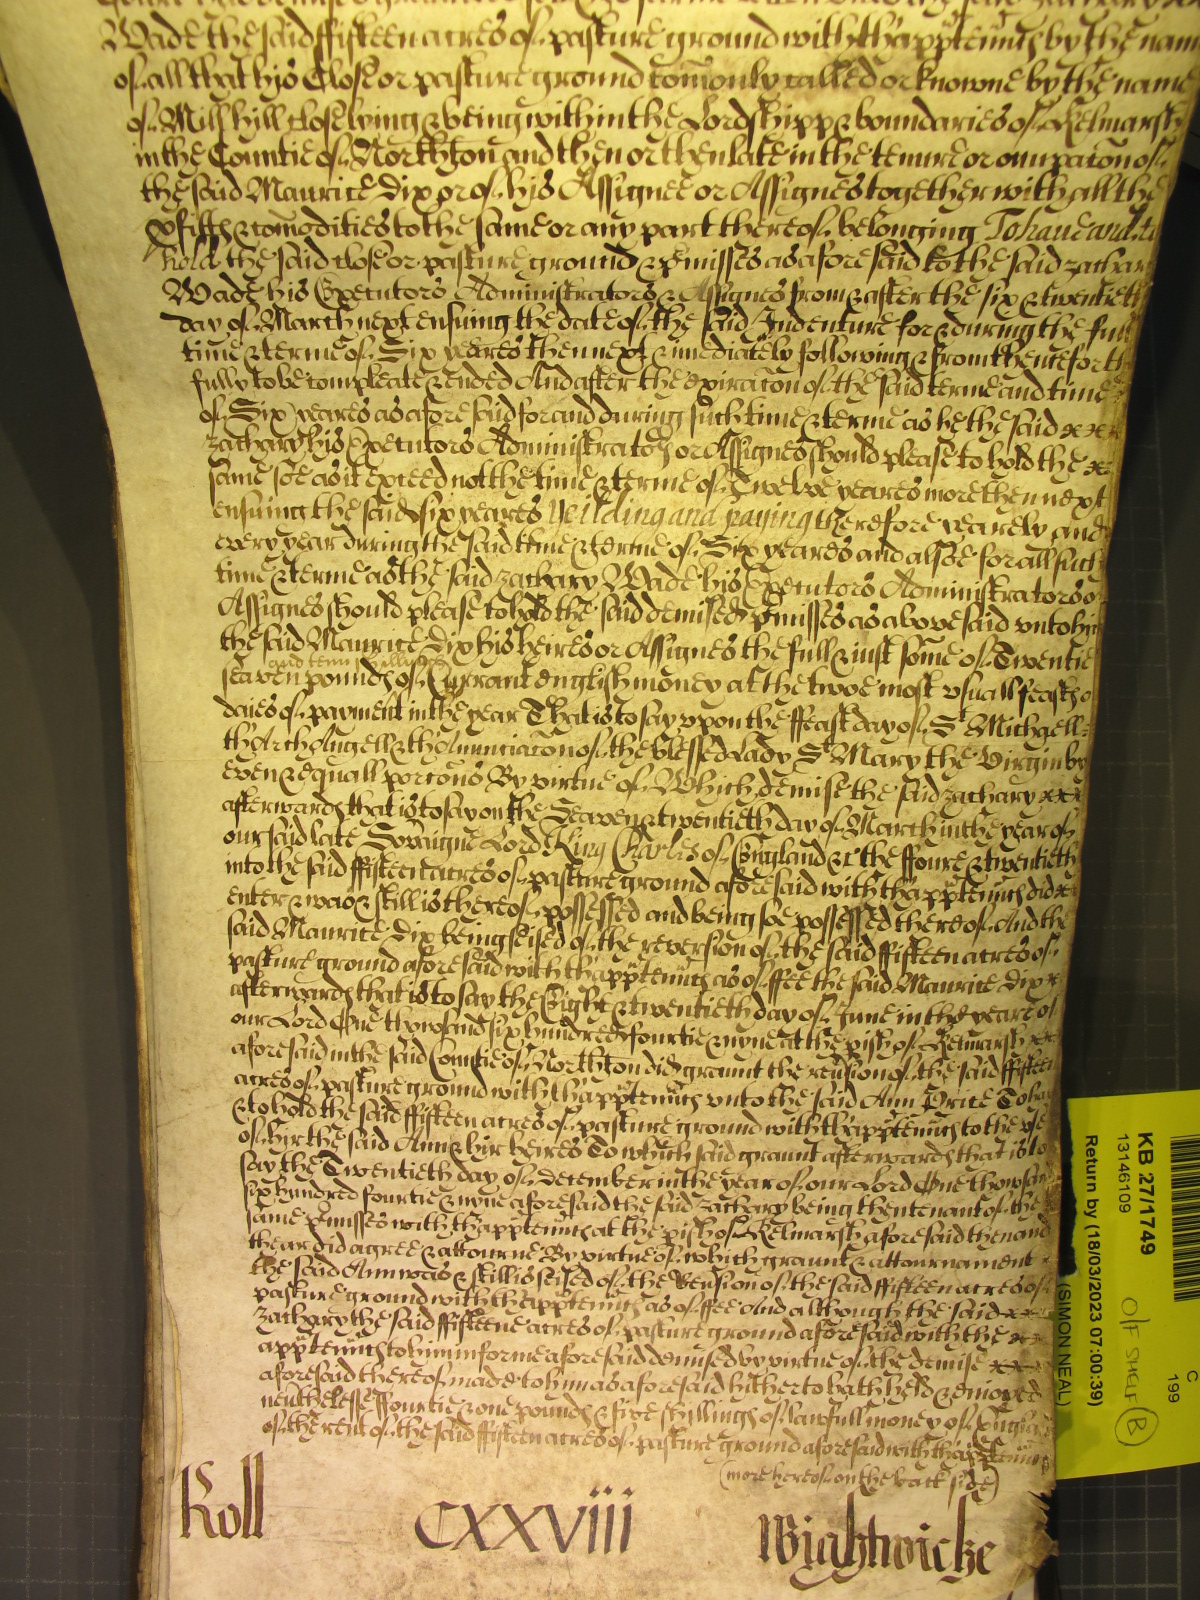 Wade the said ffifteen acres of pasture ground with thapptenncs by the name
of all that his Close or pasture ground comonly called or knowne by the name
of Mill hill close lying & being within the Lordshipp & boundaries of Kelmarsh
in the Countie of Northton and then or then late in the tenure or occupacon of
the said Maurice Dix or of his Assignee or Assignes together with all the
pfitts & comodities to the same or any part thereof belonging To have and to
hold the said close or pasture ground & pmisses as aforesaid to the said Zachary
Wade his Executors Administrators & Assignes from & after the six & twentieth
day of March next ensuing the date of the said Indenture for & during the full
time & terme of Six yeares then next & imediately following & from thenceforth
fully to be compleate & ended And after the expiracon of the said terme and time
of Six yeares as aforesaid for and during such time & terme as he the said
Zachary his Executors Administrators or Assignes should please to hold the
same soe as it exceed not the time & terme of Twelve yeares more then next
ensuing the said six yeares Yeilding and paying therefore yearely and
every year during the said time & terme of Six yeares and alsoe for all such
time & terme as the said Zachary Wade his Executors Administrators or
Assignes should please to hold the said demised pmisses as abovesaid unto him
the said Maurice Dix his heires or Assignes the full & iust some of Twentie
and tenn shillings
seaven pounds of Currant english money at the twoe most usuall feasts or
daies of payment in the year That is to say upon the ffeast day of St Michaell
thArchAngell & thAnunciacon of the blessed Lady St Mary the Virgin by
even & equall porcons By virtue of Which demise the said Zachary
afterwards that is to say on the Seaven & twentieth day of March in the year of
our said late Sovaigne Lord King Charles of England &c the ffoure & twentieth
into the said ffifteen acres of pasture ground aforesaid with thapptenncs did
enter & was & still is thereof possessed and being soe possessed thereof And the
said Maurice Dix being seised of the reversion of the said ffifteen acres of
pasture ground aforesaid with thapptenncs as of ffee the said Maurice Dix
afterwards that is to say the Eight & twentieth day of June in the yeare of
our Lord One thowsand six hundred fourtie & nyne at the pish of Kelmarsh
aforesaid in the said Countie of Northton did graunt the revsion of the said ffifteen
acres of pasture ground with thapptenncs unto the said Ann Price To have
& to hold the said ffifteen acres of pasture ground with thapptenncs to the use
of hir the said Ann & hir heires To which said graunt afterwards that is to
say the Twentieth day of december in the year of our Lord One thowsand
six hundred fourtie & nyne aforesaid the said Zachary being then tenant of the
same pmisses with thapptenncs at the pish of Kelmarsh aforesaid then and
thear did agree & attourne By virtue of which graunt & attournament
the said Ann was & still is seised of the Revsion of the said ffifteen acres of
pasture ground with thapptenncs as of ffee And although the said
Zachary the said ffifteene acres of pasture ground aforesaid with the
apptenncs to him in forme aforesaid demised by virtue of the demise
aforesaid thereof made to him as aforesaid hitherto hath held & enioyed
neverthelesse ffourtie & one pounds & five shillings of lawfull money of England
of the rent of the said ffifteen acres of pasture ground aforesaid with thapptenncs
(more hereof on the back side)
Roll CXXVIII Wightwicke
KB 27/1749
13146109
Return by (18/03/2023 07:00:39)
(SIMON NEAL)
C
199
O/F SHELF B